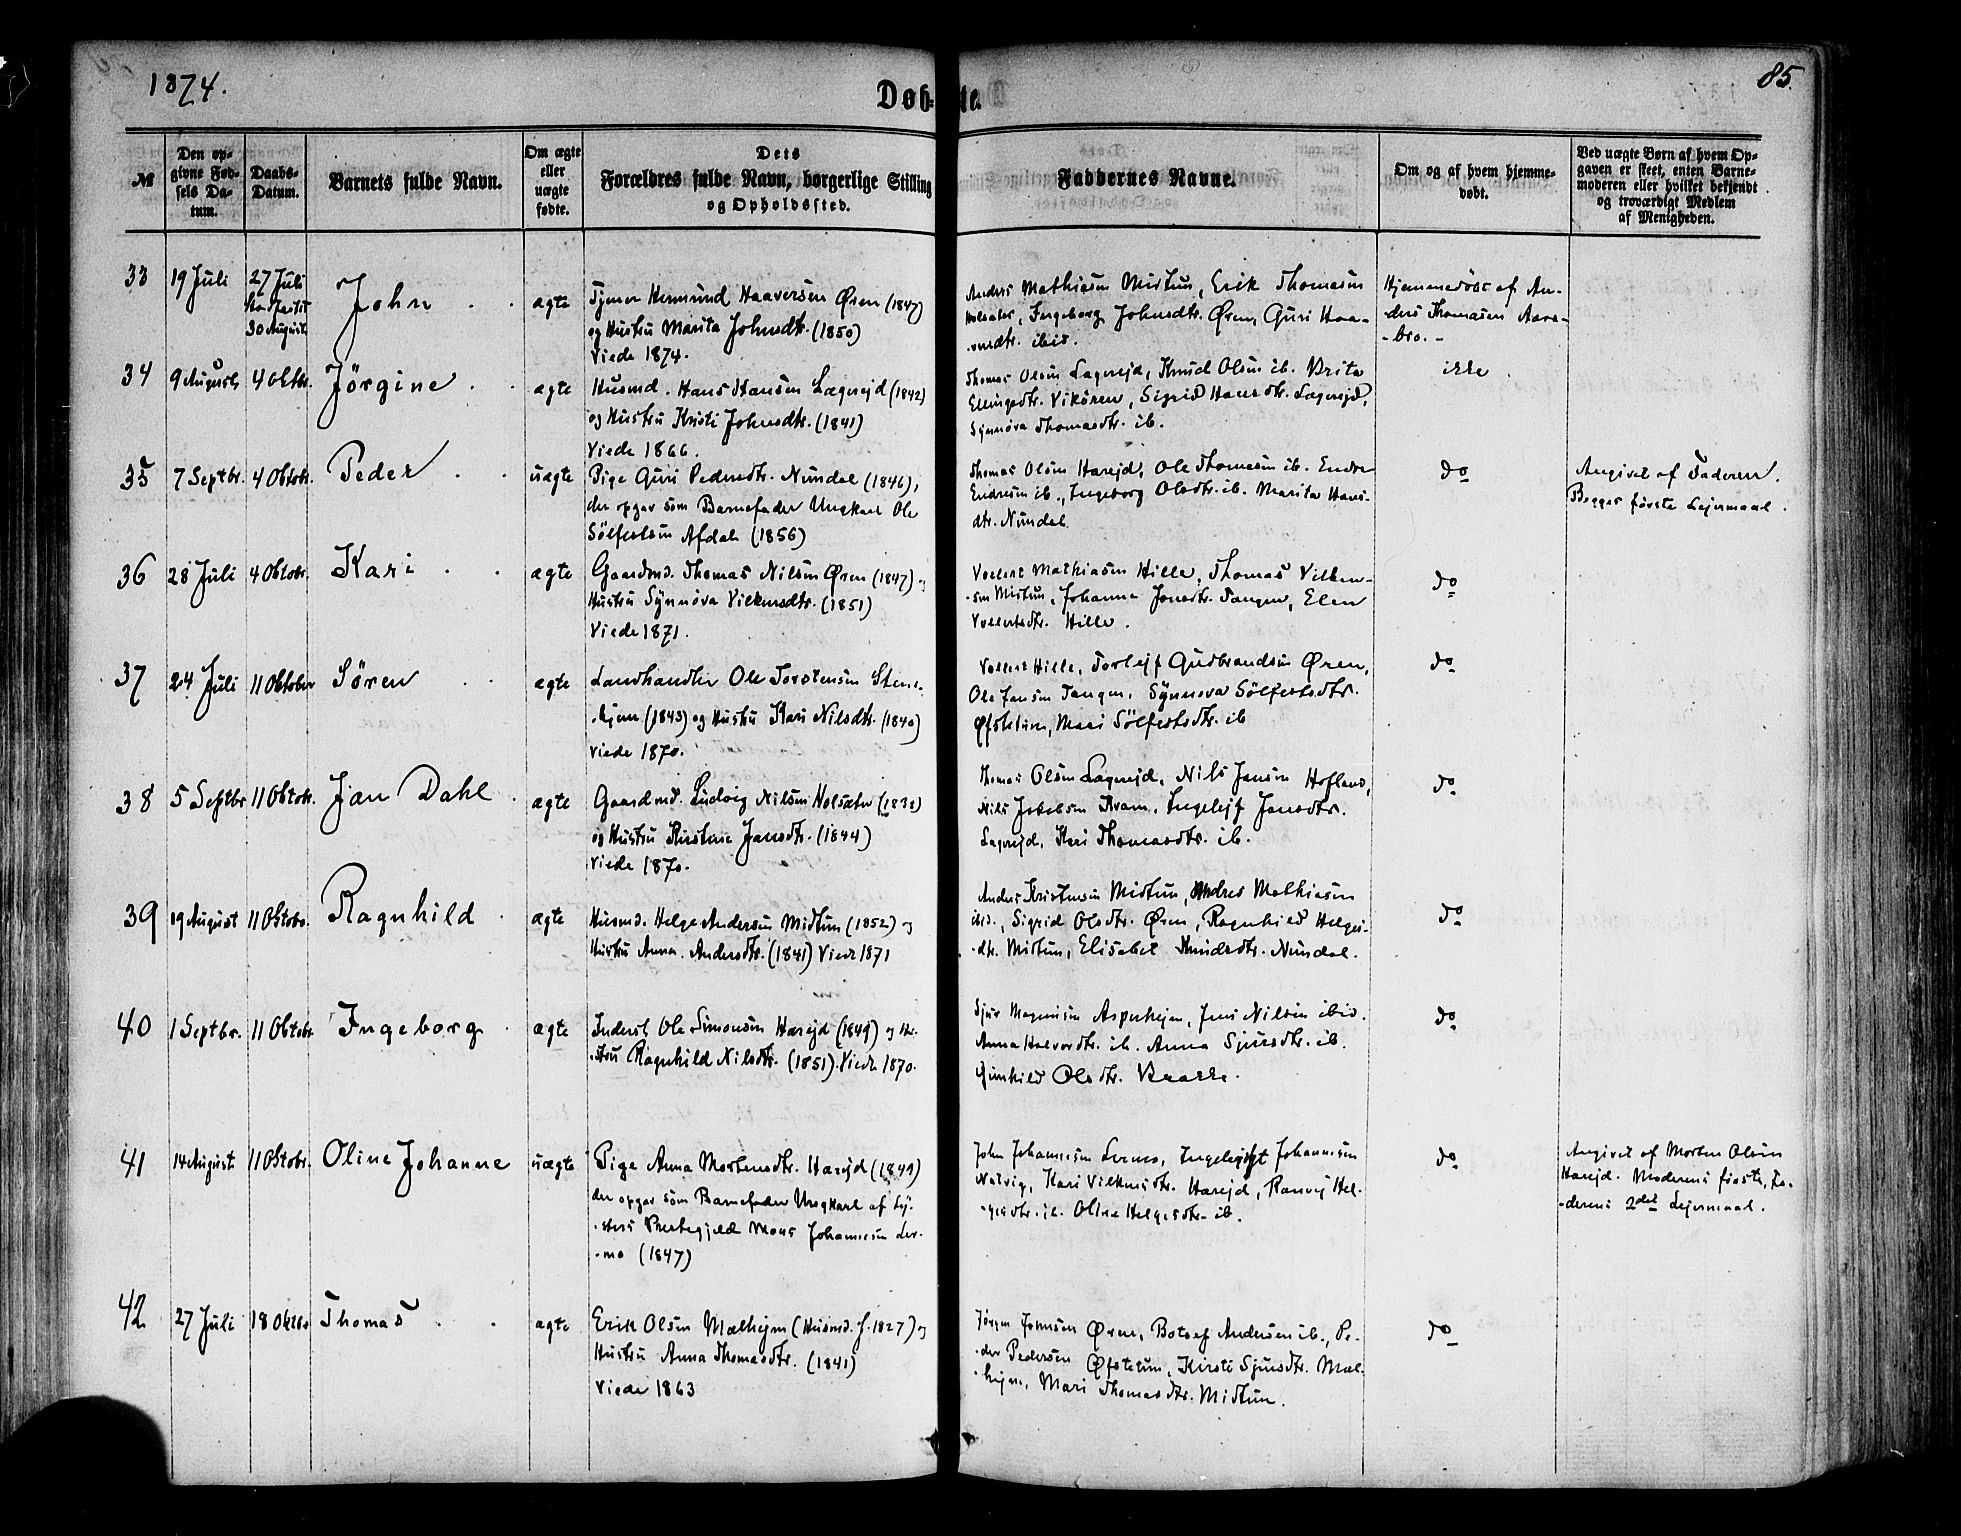 1874.
Døb-
te.
85.
№
Den op-
givne Fød-
sels Da-
tum.
Daabs-
Datum.
Barnets fulde Navn.
Om ægte
eller
uægte
fødte.
Dets
Forældres fulde Navn, borgerlige Stilling
og Opholdssted.
Faddernes Navne.
Om og af hvem hjemme-
døbt.
Ved uægte Børn af hvem Op-
gaven er skeet, enten Barne-
moderen eller hvilket bekjendt
og troværdigt Medlem
af Menigheden.
33
19 Juli
27 Juli
Stadfæstet
30 August.
John
ægte
Tjener Hermund Haaversen Øren (1847)
og Hustru Marita Johnsdtr. (1850)
Viede 1874.
Anders Mathiasen Midtun, Erik Thomasen
Holsæter, Ingeborg Johnsdtr. Øren, Guri Haa-
versdtr. ibid.
Hjemmedøbt af An-
ders Thomasen Aars-
bro.
34
9 August
4 Oktbr.
Jørgine
ægte
Husmd. Hans Hansen Lægrejd (1842)
og Hustru Kristi Johnsdtr. (1841)
Viede 1866.
Thomas Olsen Lægrejd, Knud Olsen ib. Brita
Ellingsdtr. Vikøren, Sigrid Hansdtr. Lægrejd,
Synnøva Thomasdtr. ib.
ikke
35
7 Septbr.
4 Oktobr.
Peder
uægte
Pige Guri Pedersdtr. Nundal (1846),
der opgav som Barnefader Ungkarl Ole
Sølfestsen Afdal (1856)
Thomas Olsen Harejd, Ole Thomasen ib. Endre
Endresen ib., Ingeborg Olsdtr. ib. Marita Hans-
dtr. Nundal
do
Angivet af Faderen.
Begges første Lejermaal.
36
28 Juli
4 Oktobr.
Kari
ægte
Gaardmd. Thomas Nilsen Øren (1847) og
Hustru Synnøva Vilkensdtr. (1851)
Viede 1871.
Vollert Mathiasen Hille, Thomas Vilken-
sen Midtun, Johanna Jonsdtr. Tangen, Elen
Vollertsdtr. Hille.
do
37
24 Juli
11 Oktober
Søren
ægte
Landhandler Ole Torstensen Stene-
hjem (1843) og Hustru Kari Nilsdtr. (1840)
viede 1870.
Vollert Hille, Torlejf Gudbrandsen Øren,
Ole Jansen Tangen, Synnøva Sølfestsdtr.
Øfstetun, Mari Sølfestsdtr. ib
do
38
5 Septbr
11 Oktobr.
Jan Dahl
ægte
Gaardmd. Ludvig Nilsen Holsæter (1832)
og Hustru Kirstine Jansdtr. (1844)
Viede 1870.
Thomas Olsen Lægrejd, Nils Jansen Hofland,
Nils Jakobsen Kvam, Ingelejf Jansdtr.
Lægrejd, Kari Thomasdtr. ib.
do
39
19 August
11 Oktobr.
Ragnhild
ægte
Husmd. Helge Andersen Midtun (1852) og
Hustru Anna Andersdtr. (1841) Viede 1871
Anders Kristensen Midtun, Andres Mathiasen
ibid., Sigrid Olsdtr. Øren, Ragnhild Helges-
dtr. Midtun, Elisabet Knudsdtr. Nundal.
do
40
1 Septbr.
11 Oktobr
Ingeborg
ægte
Inderst Ole Simonsen Harejd (1849) og Hu-
stru Ragnhild Nilsdtr. (1851). Viede 1870.
Sjur Magnusen Asperhejm, Jens Nilsen ibid.
Anna Halvordtr. ib. Anna Sjursdtr. ib.
Gunhild Olsdtr.
do
41
14 August
11 Oktobr.
Oline Johanne
uægte
Pige Anna Mortensdtr. Harejd (1849)
der opgav som Barnefader Ungkarl af Ly-
sters Præstegjeld Mons Johannesen Ler-
mo (1847)
John Johannesen Lermo, Johannesen
Natvig, Kari Vilkensdtr. Harejd, Ranvej Hel-
gesdtr. ib. Oline Helgesdtr. ib.
do
Angivet af Morten Olsen
Harejd. Moderens første, Fa-
derens 2det Lejermaal.
42
27 Juli
18 Oktbr
Thomas
ægte
Erik Olsen Mælhejm (Husmd. f. 1827) og
Hustru Anna Thomasdtr. (1841)
Viede 1863
Jørgen Johnsen Øren, Botolf Andersen ib., Pe-
der Pedersen Øfstetun, Kirsti Sjursdtr. Mæl-
hejm, Mari Thomasdtr. Midtun.
do